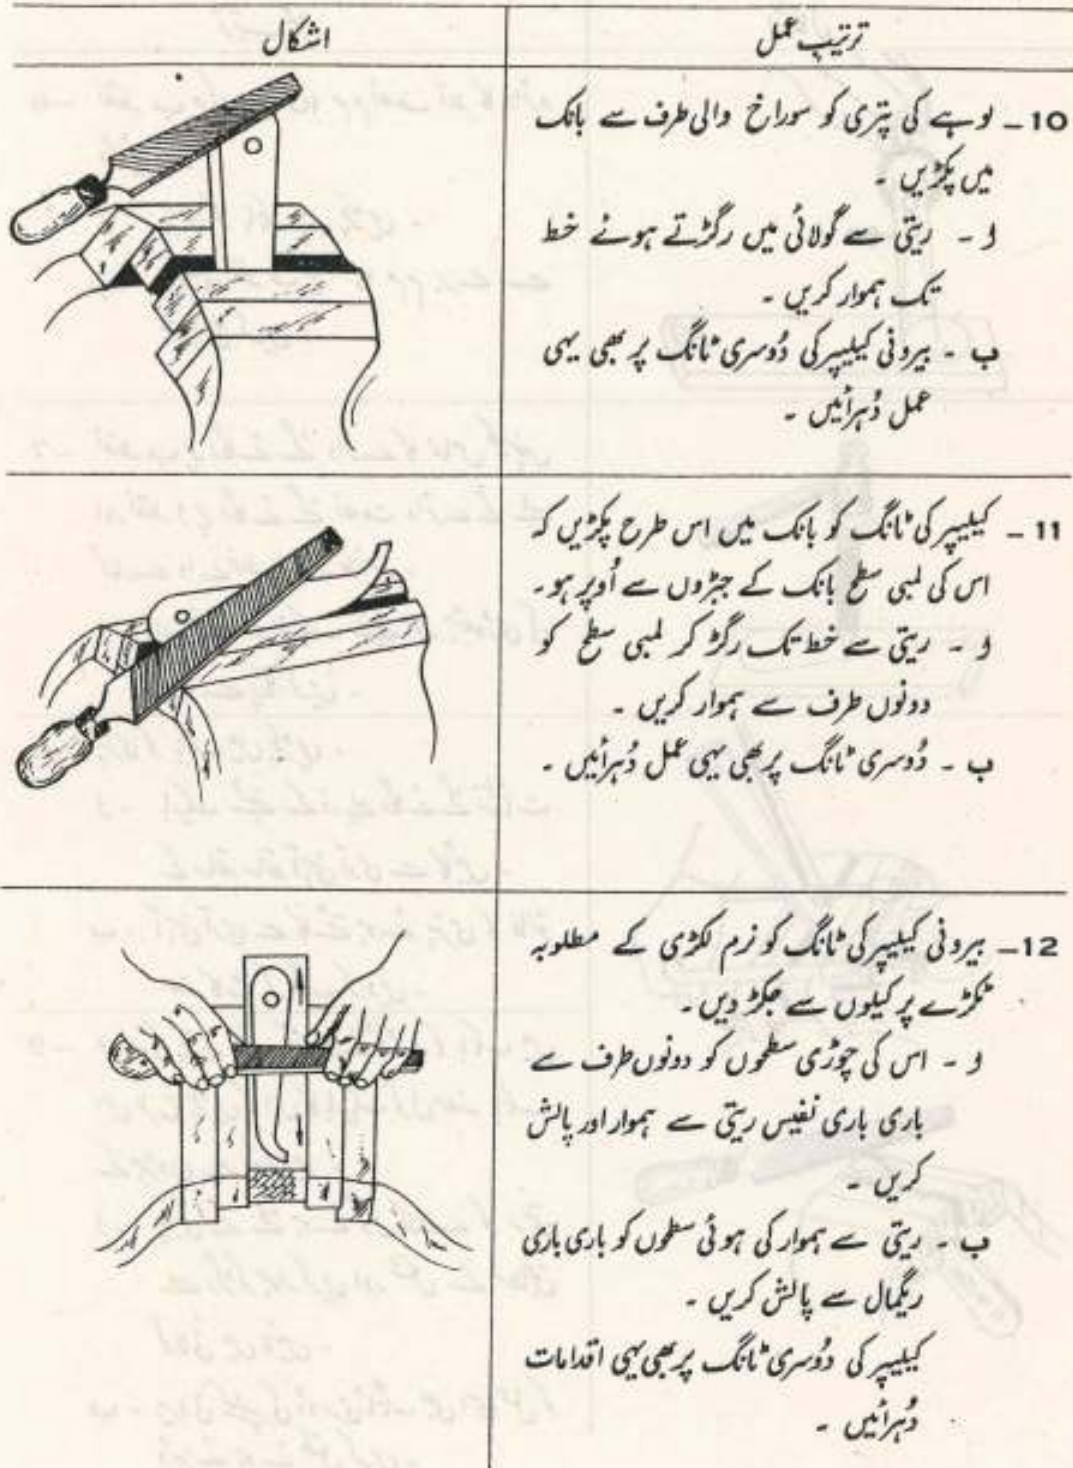 ترتیب عمل
اشکال
10- لوہے کی پتری کو سوراخ والی طرف سے بانک
میں پکڑیں -
ا - ریتی سے گولائی میں رگڑتے ہوئے خط
تک ہموار کریں -
ب - بیرونی کیلیپر کی دُوسری ٹانگ پر بھی یہی
عمل دُہرائیں -
11 - کیلیپر کی ٹانگ کو بانک میں اس طرح پکڑیں کہ
اس کی لمبی سطح بانک کے جبڑوں سے اُوپر ہو-
ا - ریتی سے خط تک رگڑ کر لمبی سطح کو
دونوں طرف سے ہموار کریں -
ب - دُوسری ٹانگ پر بھی یہی عمل دُہرائیں -
12- بیرونی کیلیپر کی ٹانگ کو نرم لکڑی کے مطلوبہ
ٹکڑے پر کیلوں سے جکڑ دیں -
ا - اس کی چوڑی سطحوں کو دونوں طرف سے
باری باری نفیس ریتی سے ہموار اور پالش
کریں -
ب - ریتی سے ہموار کی ہوئی سطحوں کو باری باری
ریگمال سے پالش کریں -
کیلیپر کی دُوسری ٹانگ پر بھی یہی اقدامات
دُہرائیں -